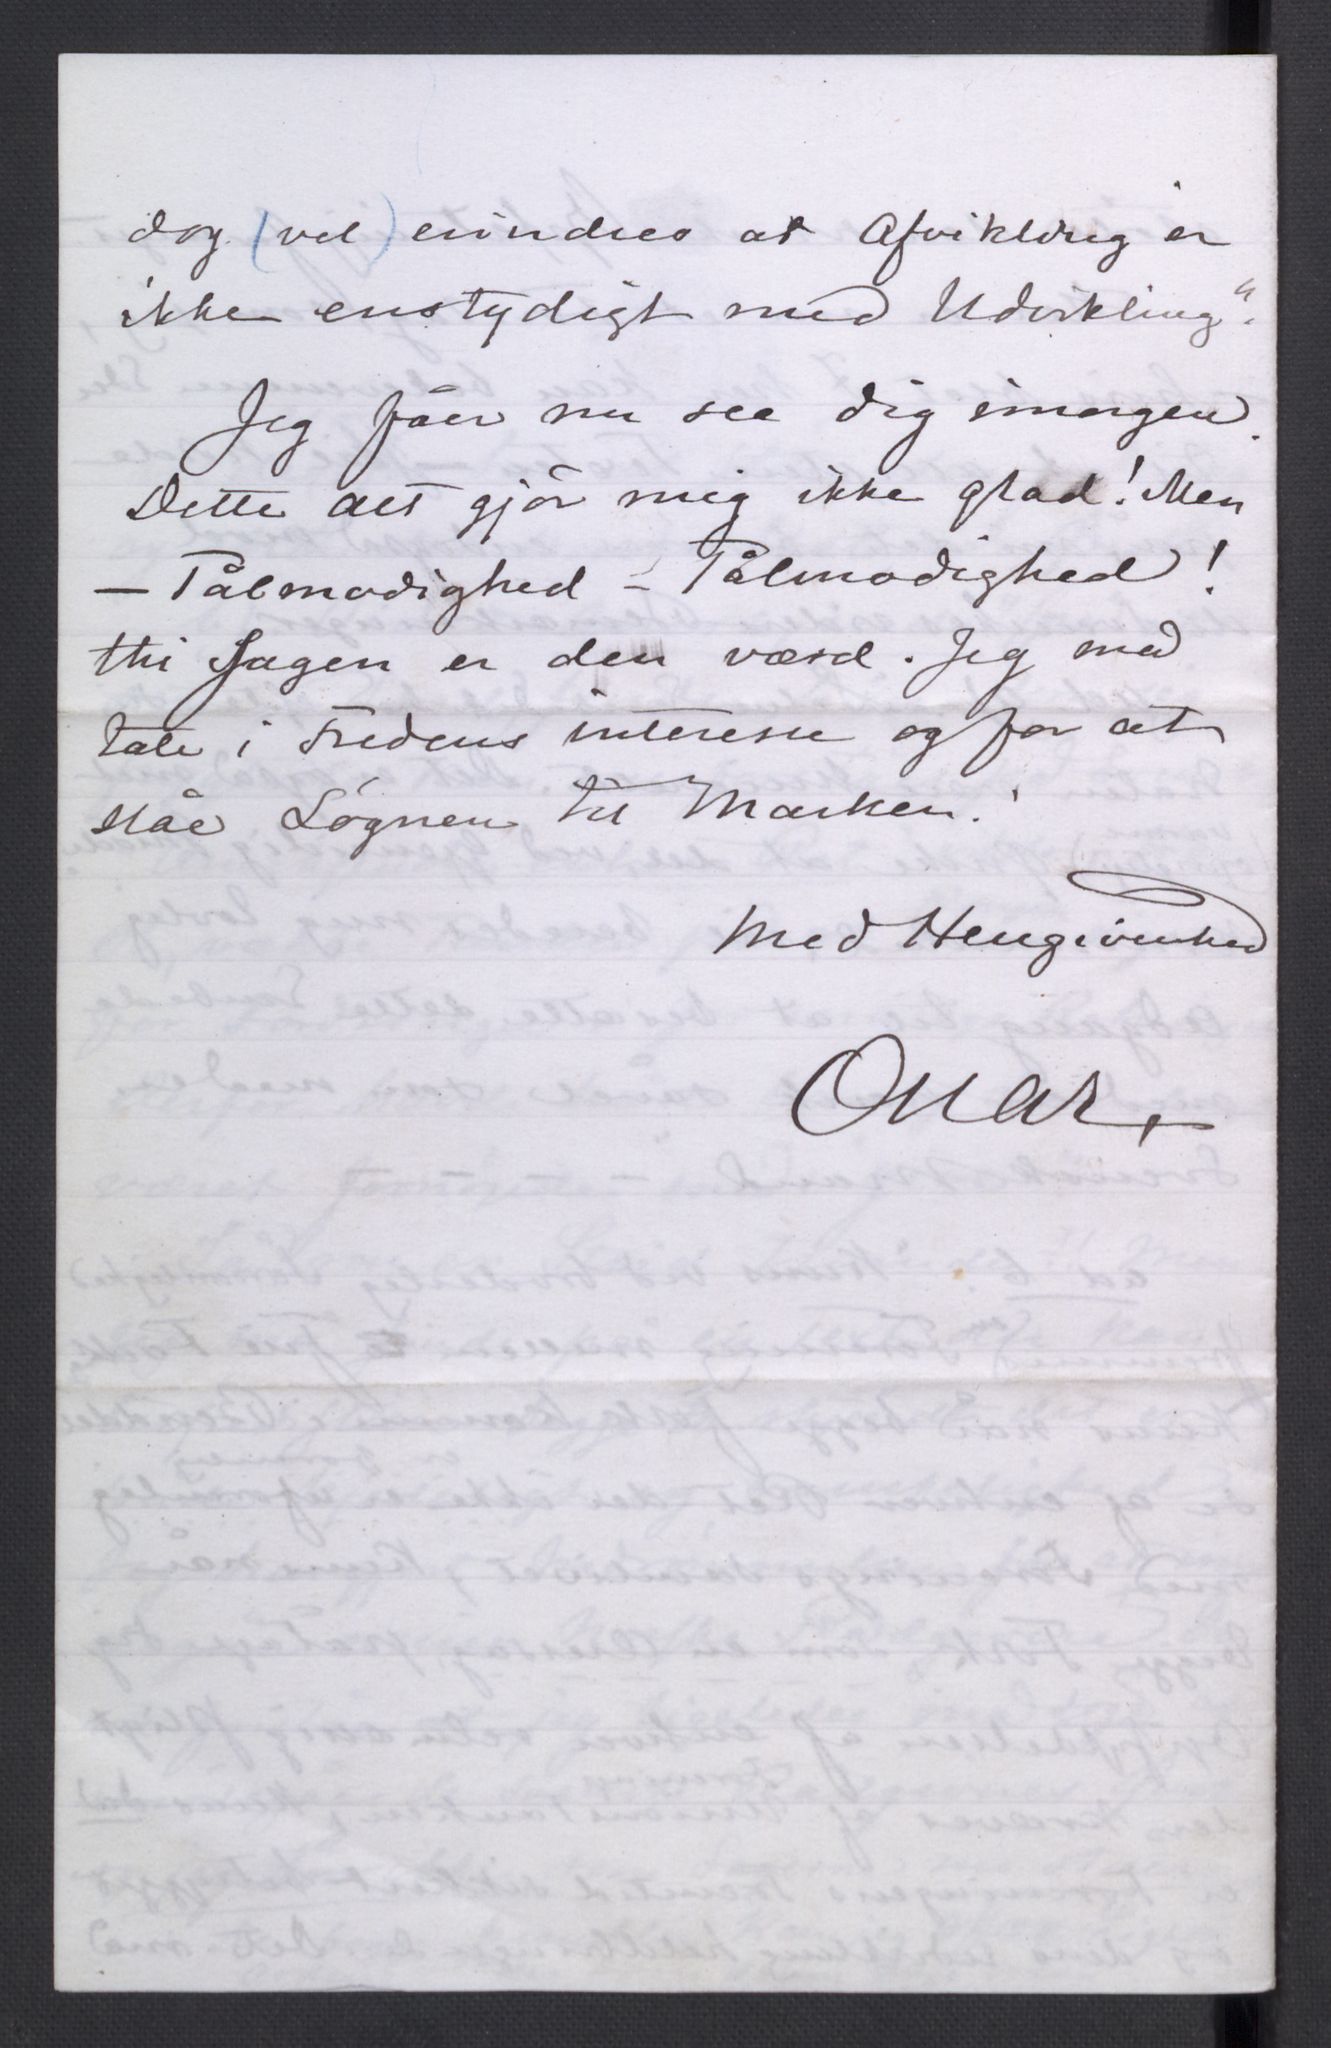 dog (vel) erindres at Afvikling er
ikke enstydigt med Udvikling".
Jeg fåer nu see dig imorgen.
Dette alt gjör mig ikke glad! Men
– Tålmodighed – Tålmodighed!
thi Sagen er den værd. Jeg må
tale i Fredens interesse og for at
slåe Løgnen til Marken!
Med Hengivenhed
Oscar